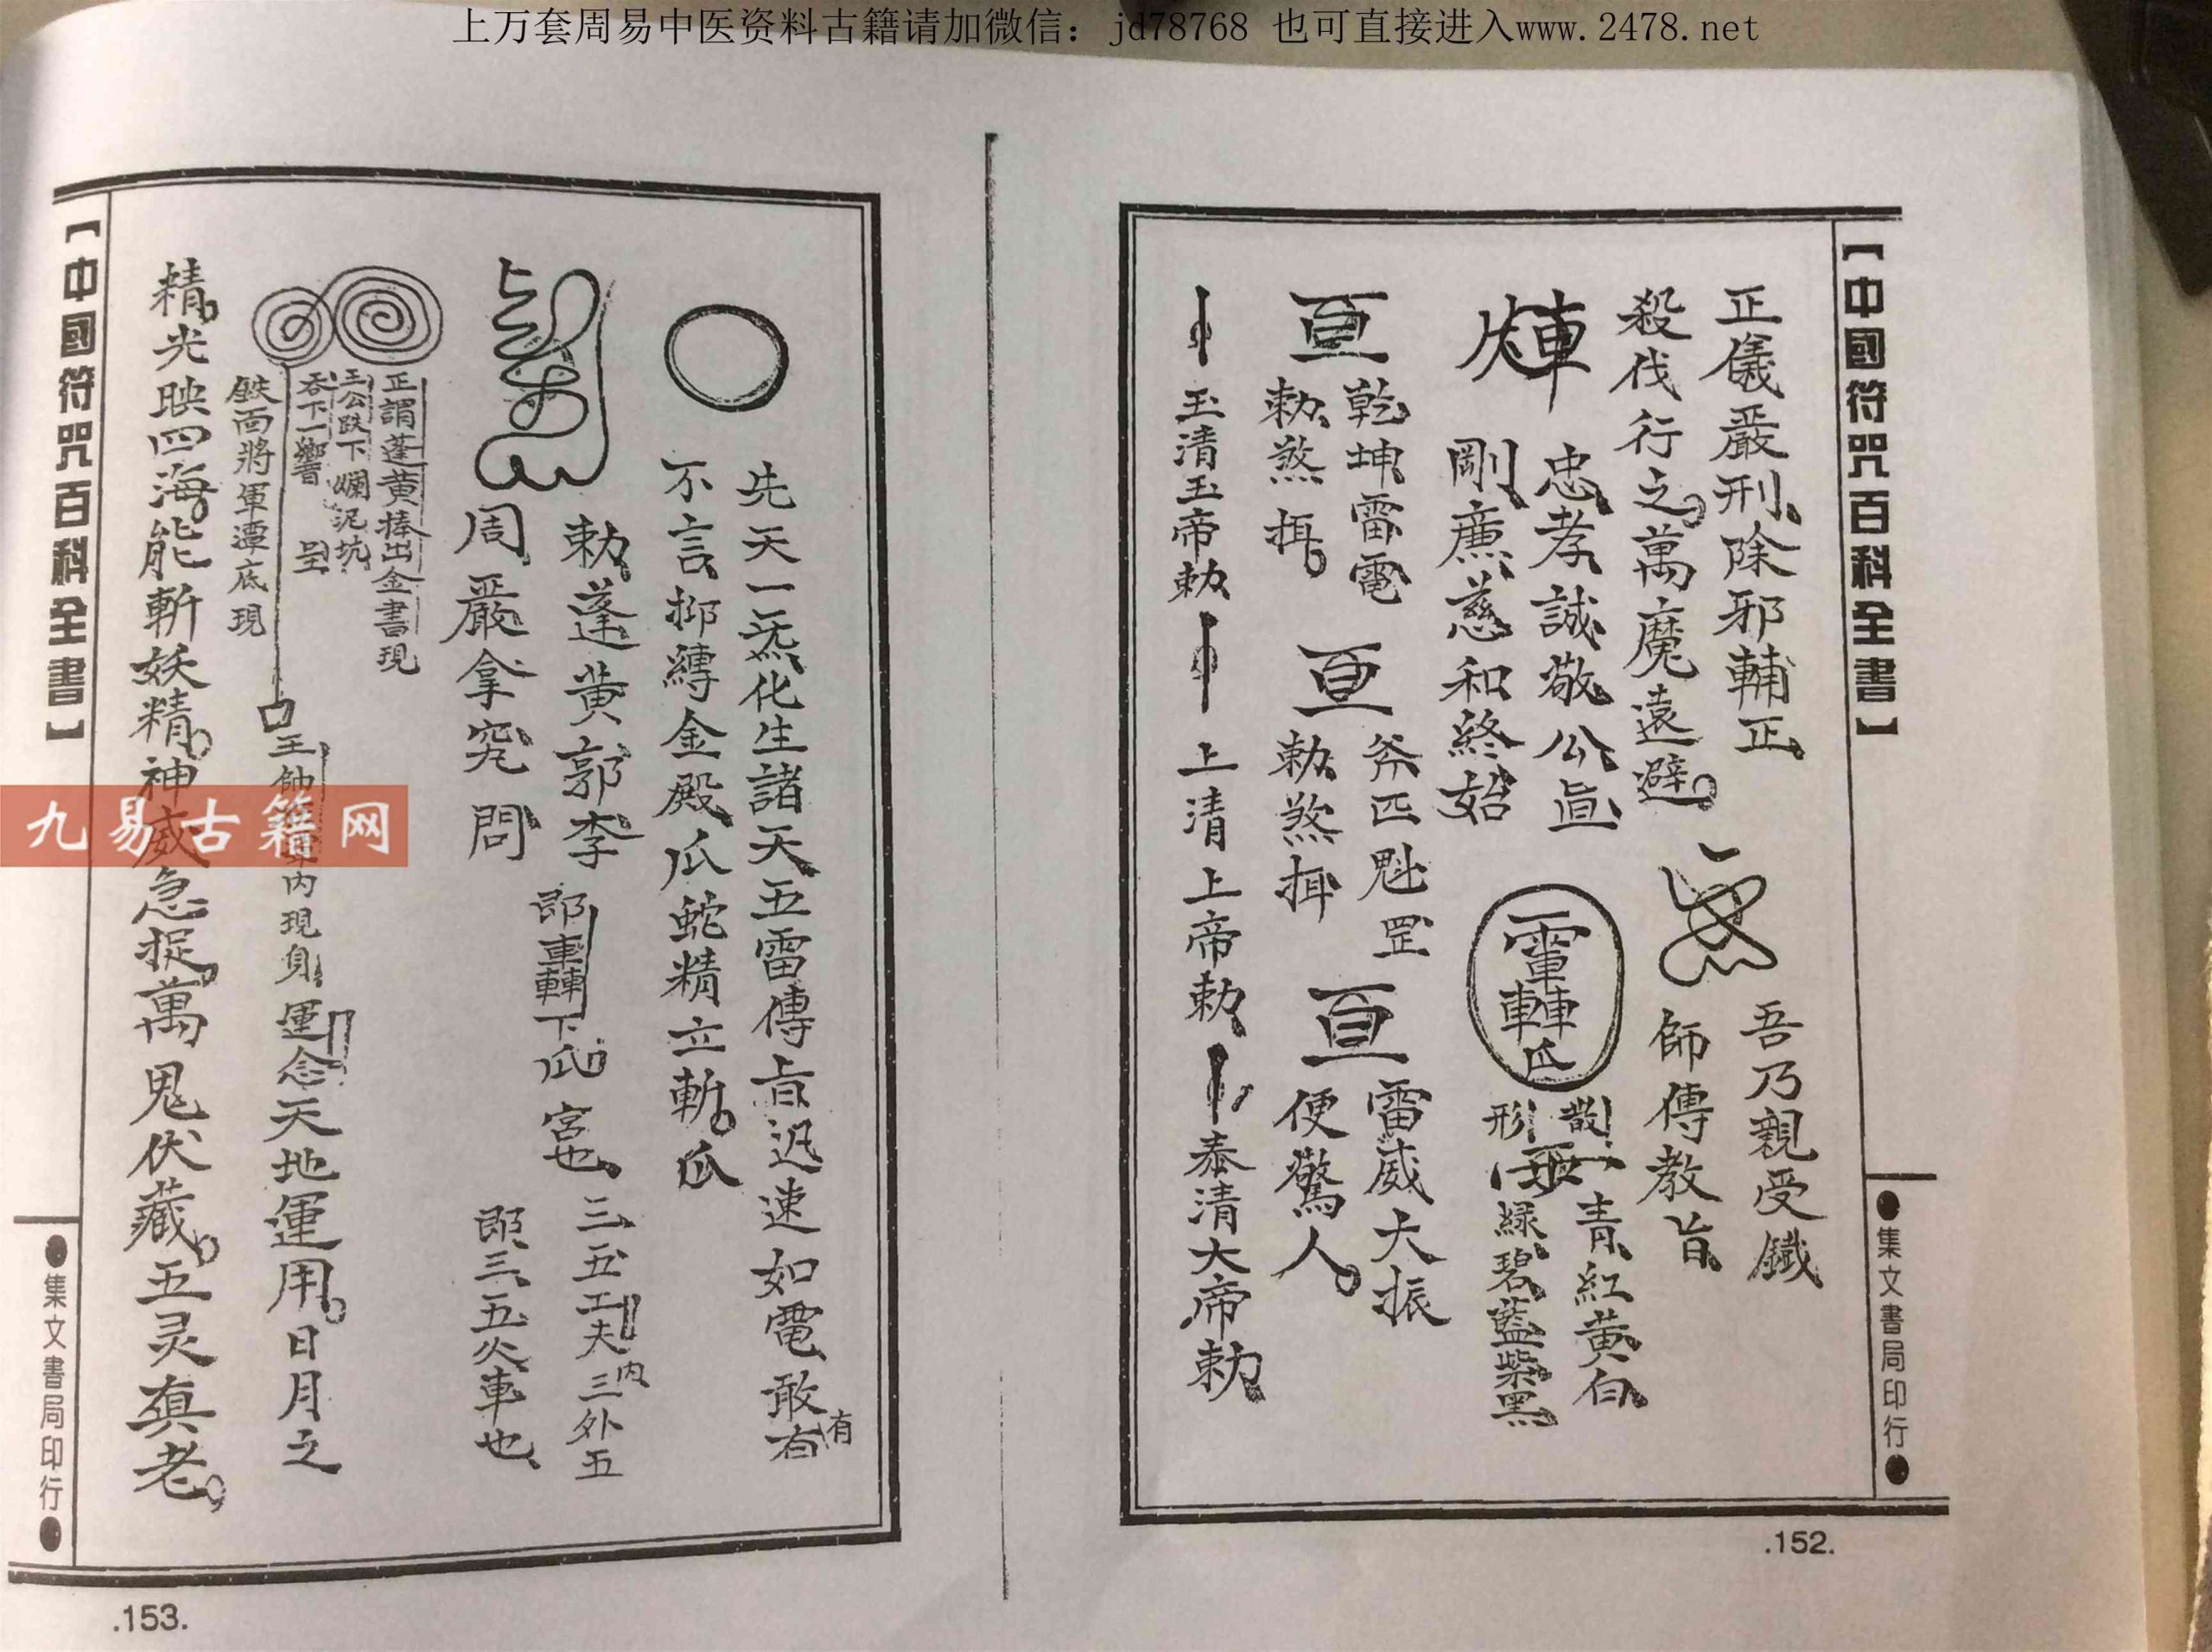 上万套周易中医资料古籍请加微信：jd78768 也可直接进入www.2478.net
【中國符咒百科全書】
●集文書局印行●
正儀嚴刑除邪輔正
殺伐行之萬魔遠避
吾乃親受鐵
師傳教旨
忠孝誠敬公直
剛廉慈和終始
散
形
青紅黃白
綠碧藍紫黑
亘
乾坤雷電
勅煞揖
亘
斧匹魁罡
勅煞揖
亘
雷威大振
便驚人
玉清玉帝勅
上清上帝勅
泰清大帝勅
.152.
先天一炁化生諸天五雷傳旨迅速如電敢有
有
不言抑縛金殿瓜蛇精立斬
勅蓬黃郭李
周嚴拿究問
三五工夫内三外五
郎三五火車也
正謂蓬黃捧出金書現
王公跌下爛泥坑
吞下一響
鉄面將軍潭底現
内現身運念天地運用日月之
精光映四海能斬妖精神威急捉萬鬼伏藏五灵真老
【中國符咒百科全書】
●集文書局印行●
.153.
九易古籍网